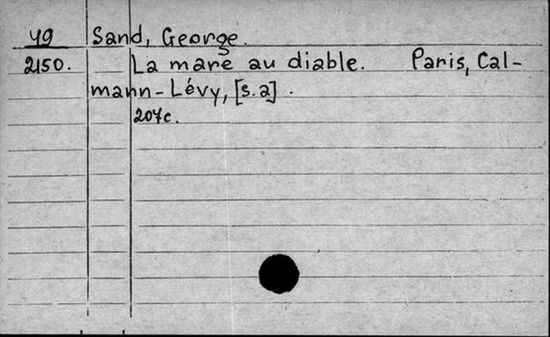 49 Sand, George.
2150. La mare au diable. Paris, Cal-
mann-Lévy, [s.a].
207c.